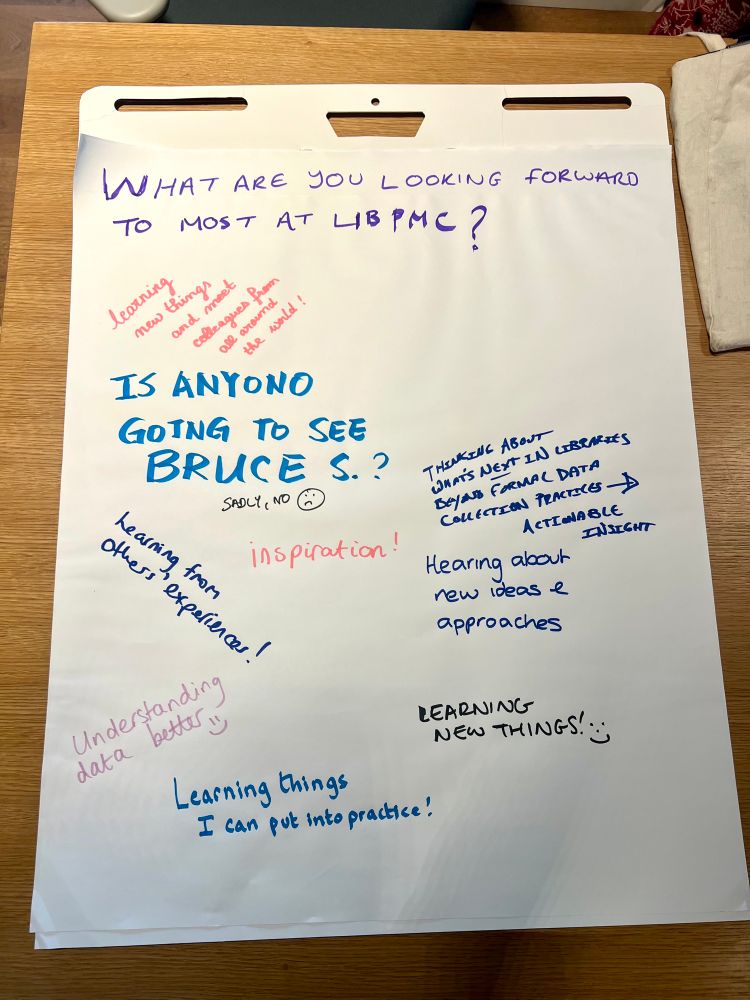 WHAT ARE YOU LOOKING FORWARD
TO MOST AT LIBPMC?
learning
new things
and meet
colleagues from
all around
the world!
IS ANYONO
GOING TO SEE
BRUCE S.?
SADLY, NO
THINKING ABOUT
WHAT'S NEXT IN LIBRARIES
BEYOND FORMAL DATA
COLLECTION PRACTICES →
ACTIONABLE
INSIGHT
inspiration!
Learning from
others' experiences!
Hearing about
new ideas &
approaches
Understanding
data better
LEARNING
NEW THINGS!
Learning things
I can put into practice!